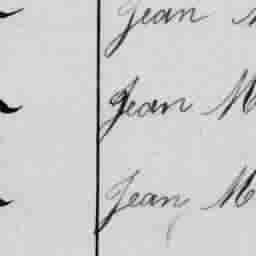 Jean
Jean M
Jean M